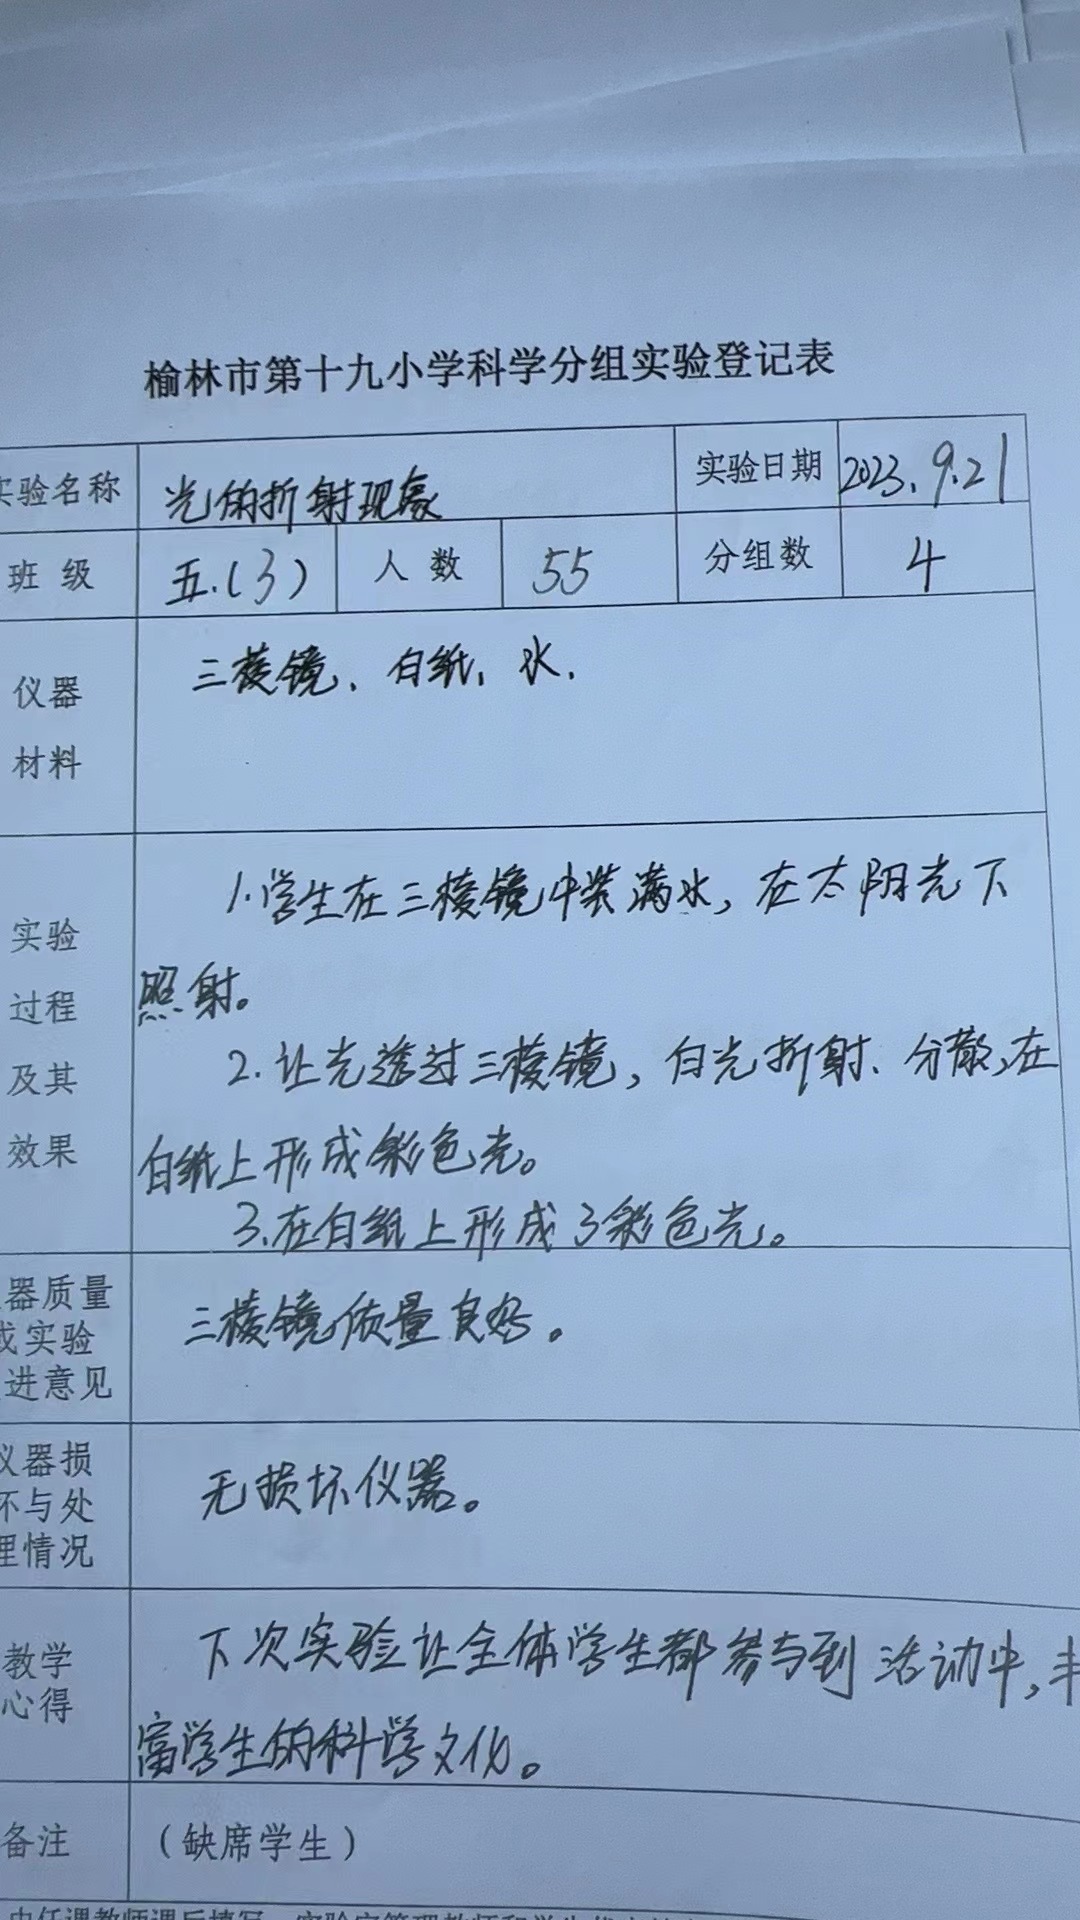 榆林市第十九小学科学分组实验登记表
实验名称 光的折射现象 实验日期 2023.9.21
班级 五.(3) 人数 55 分组数 4
仪器
材料
三棱镜、白纸、水.
实验
过程
及其
效果
1.学生在三棱镜中装满水，在太阳光下
照射。
2.让光透过三棱镜，白光折射、分散，在
白纸上形成彩色光。
3.在白纸上形成了彩色光。
器质量
或实验
进意见
三棱镜质量良好。
仪器损
坏与处
理情况
无损坏仪器。
教学
心得
下次实验让全体学生都参与到活动中，丰
富学生的科学文化。
备注 （缺席学生）